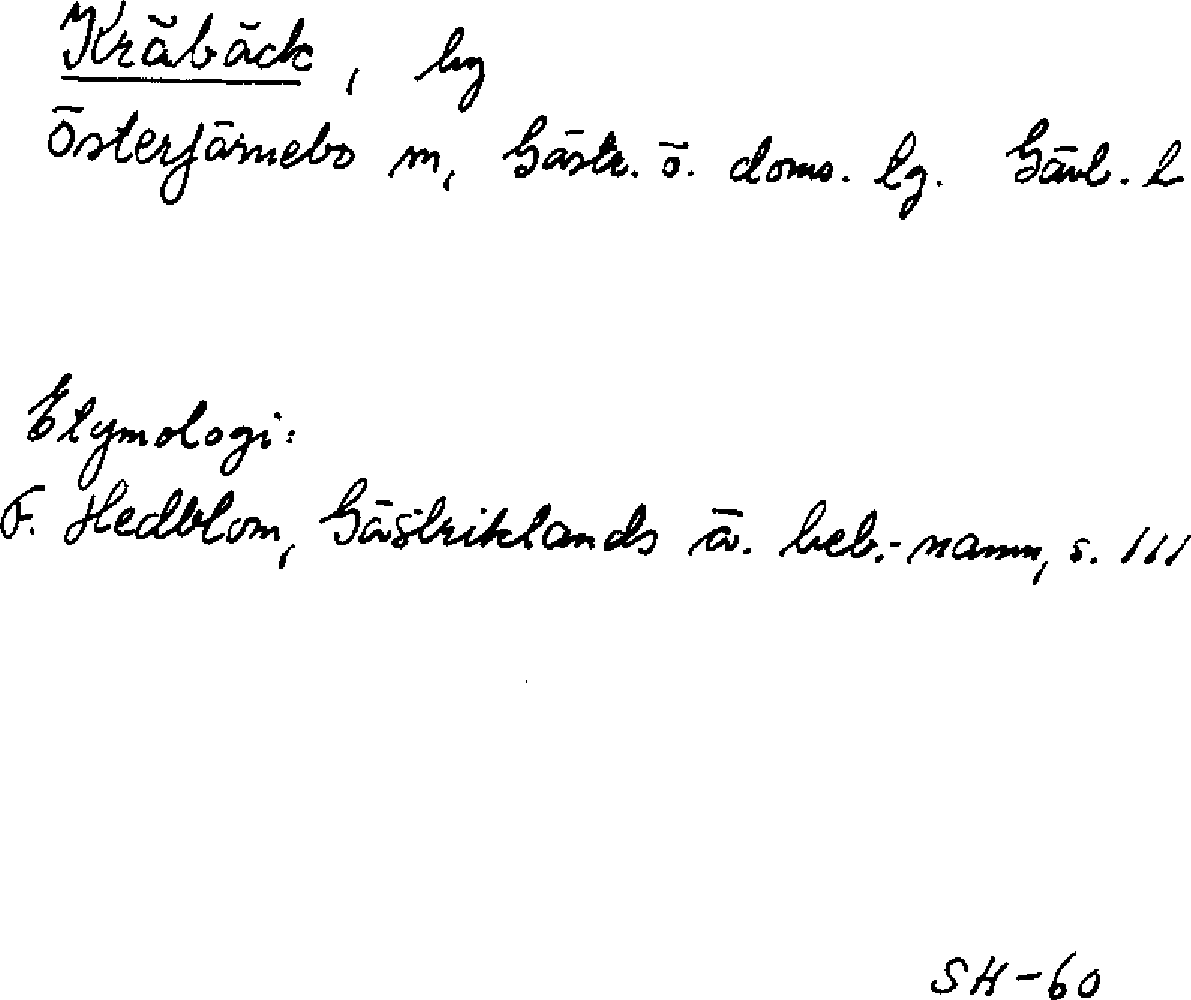 Kräbäck, by
Österfärnebo sn, Gästr. ö. doms. lg. Gävl. L
Etymologi:
F. Hedblom, Gästriklands ä. beb.-namn, s. 111
SH-60